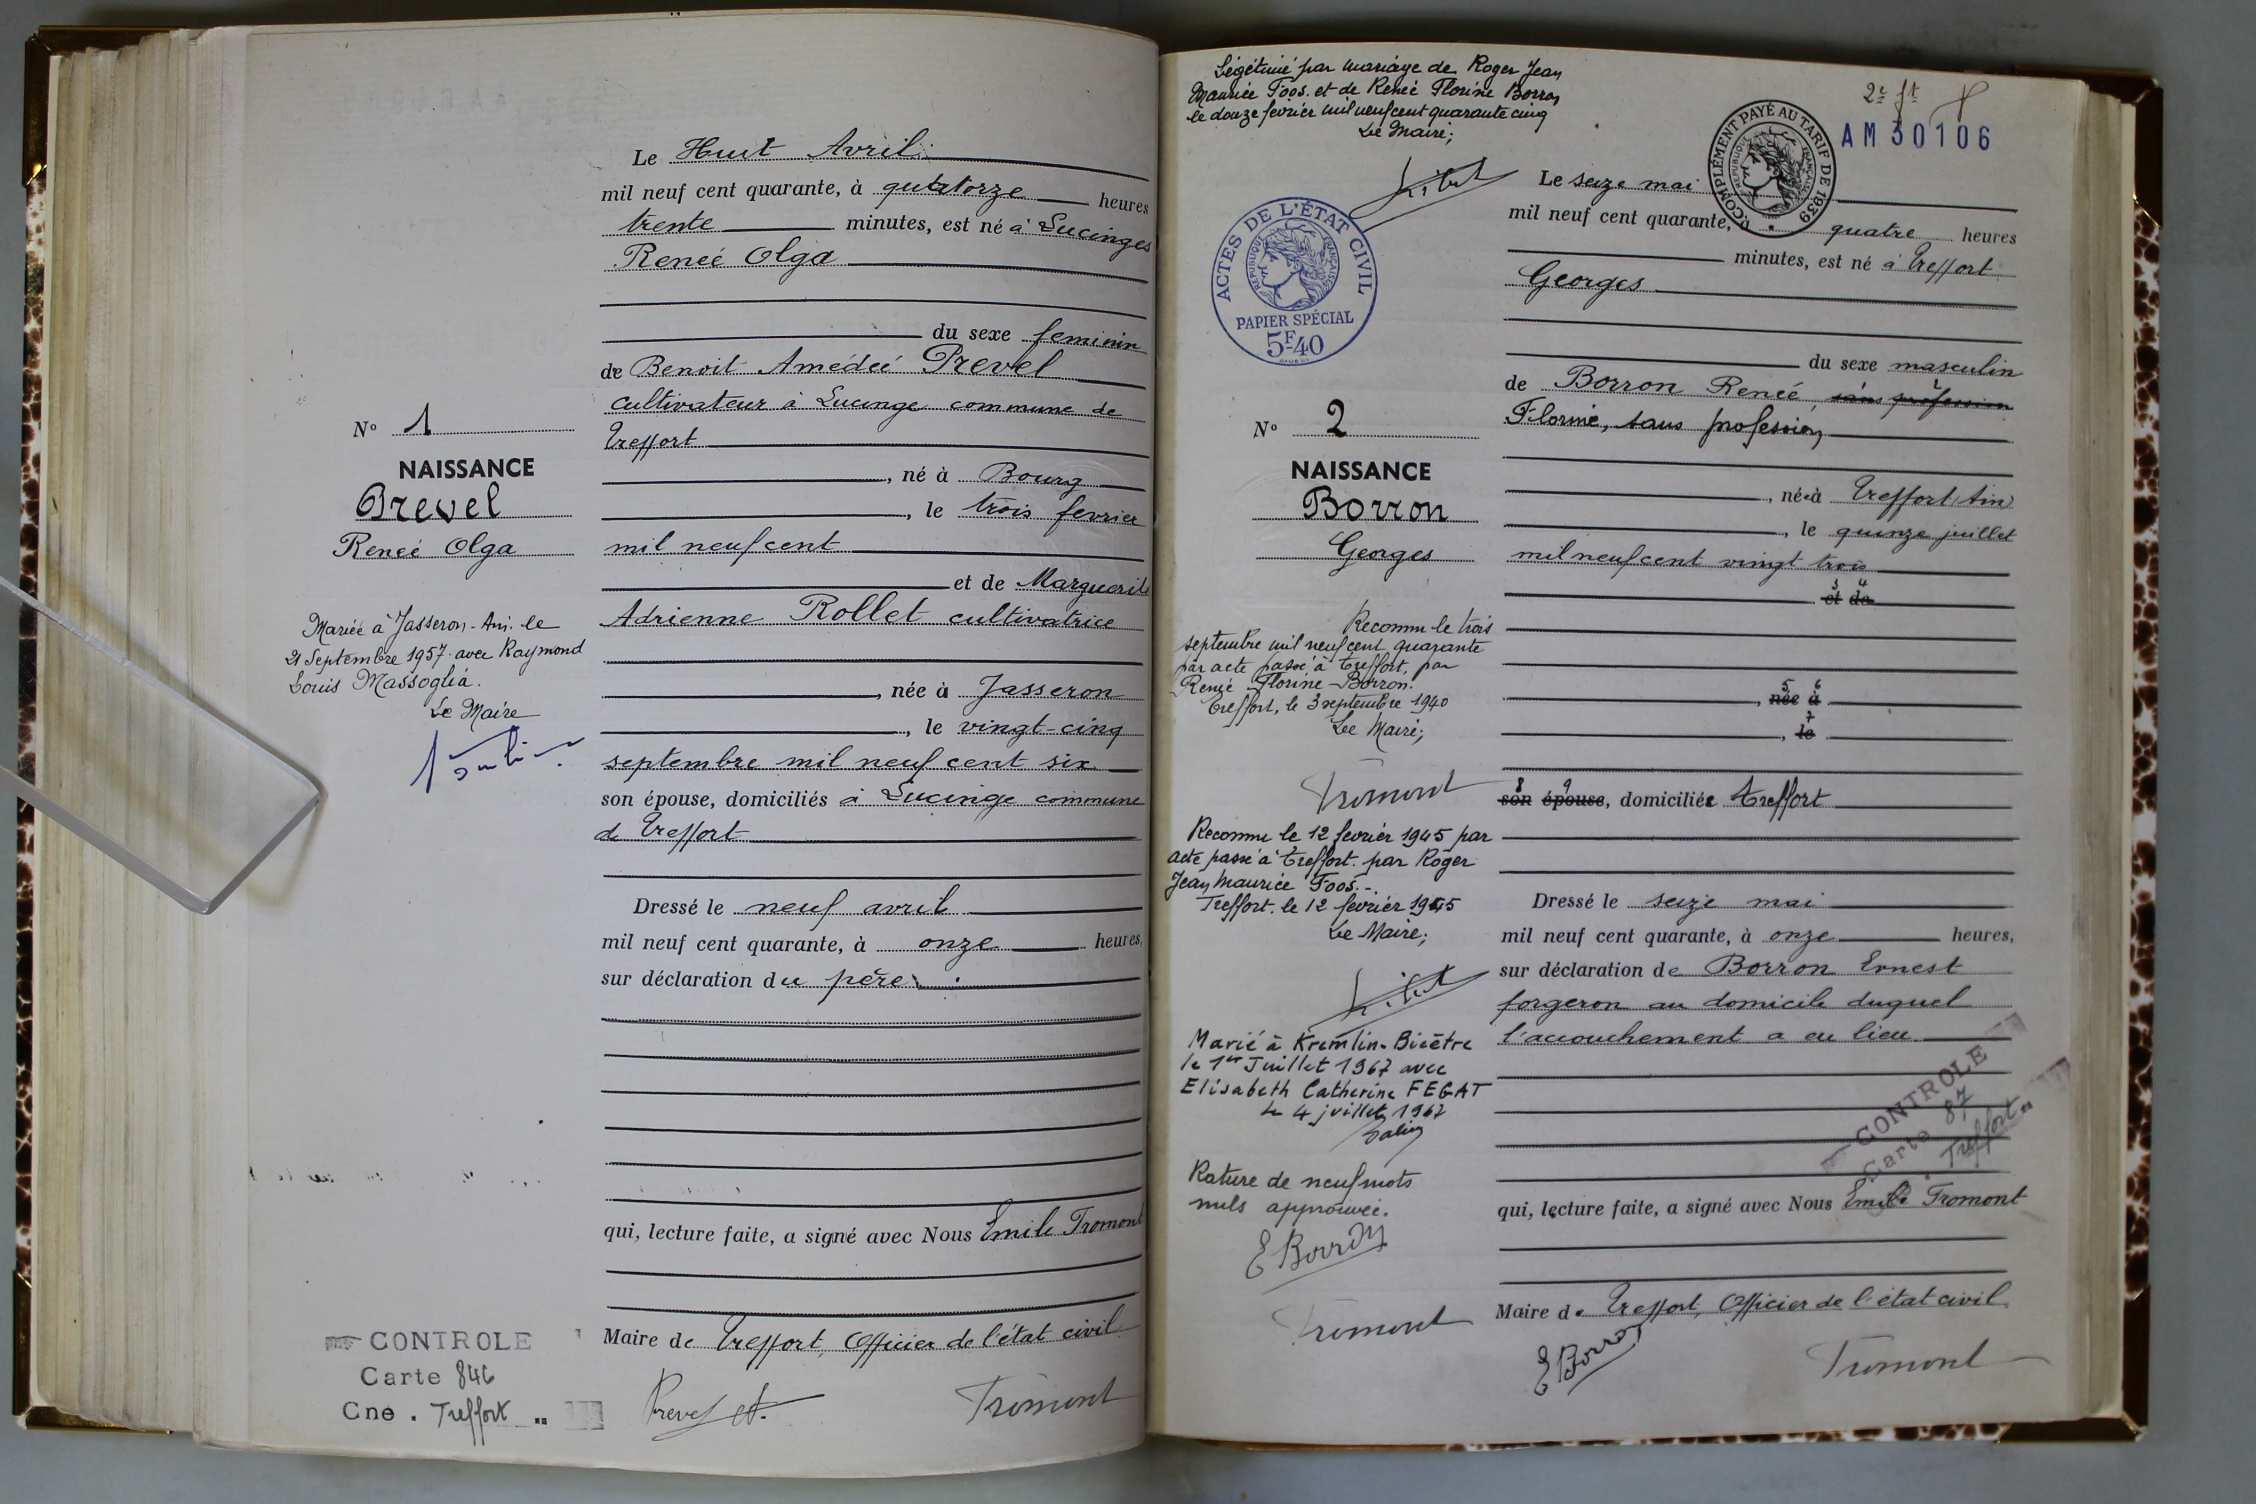 Le Huit Avril
mil neuf cent quarante, à quatorze heures
trente minutes, est né à Lucinges
Renée Olga
du sexe feminin
de Benoit Amédée Prevel
cultivateur à Lucinge commune de
Treffort
, né à Bourg
, le trois fevrier
mil neuf cent
et de Marguerite
Adrienne Rollet cultivatrice
, née à Jasseron
, le vingt-cinq
septembre mil neuf cent six
son épouse, domiciliés à Lucinge commune
de Treffort
Dressé le neuf avril
mil neuf cent quarante, à onze heures,
sur déclaration du père
qui, lecture faite, a signé avec Nous Emile Tromont
Maire de Treffort, Officier de l'état civil
Prevel
Tromont
N° 1
NAISSANCE
Prevel
Renée Olga
Mariée à Jasseron - Ain. le
21 Septembre 1957 avec Raymond
Louis Massoglia.
Le Maire
CONTROLE
Carte 846
Cne . Treffort
Légitimé par mariage de Roger Jean
Maurice Foos. et de Renée Florine Borron
le douze février mil neuf cent quarante cinq
Le Maire;
ACTES DE L'ÉTAT CIVIL
RÉPUBLIQUE FRANÇAISE
PAPIER SPÉCIAL
5F40
N° 2
NAISSANCE
Borron
Georges
Reconnu le trois
septembre mil neuf cent quarante
par acte passé à Treffort, par
Renée - Florine - Borron.
Treffort, le 3 septembre 1940
Le Maire;
Tromont
Reconnu le 12 fevrier 1945 par
acte passé à Treffort. par Roger
Jean Maurice Foos.-
Treffort. le 12 fevrier 1945
Le Maire;
Marié à Kremlin-Bicêtre
le 1er Juillet 1967 avec
Elisabeth Catherine FEGAT
le 4 juillet 1967
Rature de neuf mots
nuls approuvée.
E Borron
Tromont
2e ft
AM 30106
COMPLÉMENT PAYÉ AU TARIF DE 1939
RÉPUBLIQUE FRANÇAISE
Le seize mai
mil neuf cent quarante, à quatre heures
minutes, est né à Treffort
Georges
du sexe masculin
de Borron Renée, sans profession
Florine, sans profession
, née à Treffort (Ain)
, le quinze juillet
mil neuf cent vingt trois
3 4
et de
5 6
, née à
7
, le
8 9
son épouse, domiciliée Treffort
Dressé le seize mai
mil neuf cent quarante, à onze heures,
sur déclaration de Borron Ernest
forgeron au domicile duquel
l'accouchement a eu lieu
CONTROLE
Carte 87
Treffort
qui, lecture faite, a signé avec Nous Emile Tromont
Maire de Treffort, Officier de l'état civil
E Borron
Tromont